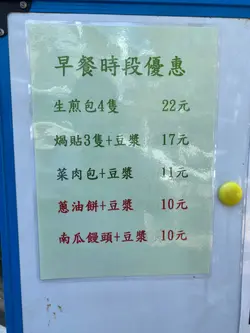 早餐時段優惠
生煎包4隻 22元
煱貼3隻+豆漿 17元
菜肉包+豆漿 11元
蔥油餅+豆漿 10元
南瓜饅頭+豆漿 10元